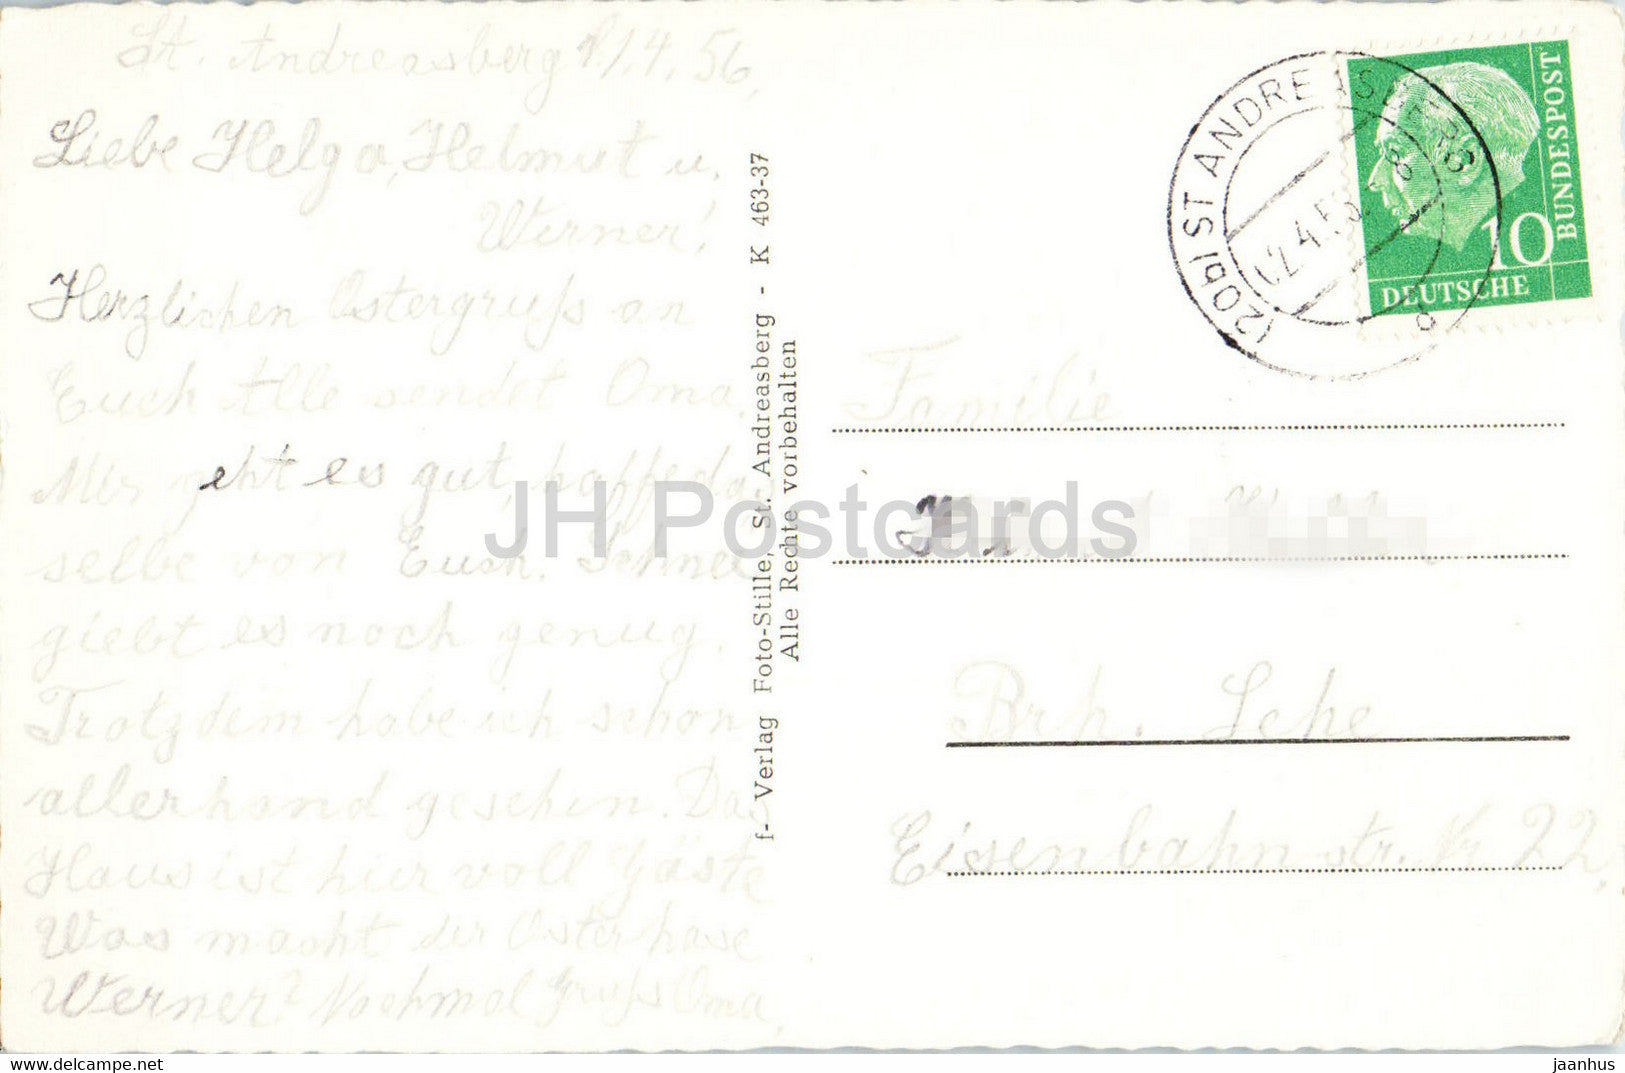 St. Andreasberg 1.4.56.
Liebe Helga, Helmut u.
Werner!
Herzlichen Ostergruß an
Euch Alle sendet Oma.
Mir geht es gut, hoffe da
selbe von Euch. Schnee
giebt es noch genug.
Trotzdem habe ich schon
allerhand gesehen. Das
Haus ist hier voll Gäste
Was macht der Osterhase
Werner? Nochmal Gruß Oma
f- Verlag Foto-Stille, St. Andreasberg - K 463-37
Alle Rechte vorbehalten
(20b) ST ANDREASBERG
DEUTSCHE
BUNDESPOST
10
Familie
Brh. Lehe
Eisenbahnstr. Nr 22.
JH Postcards
www.hippostcard.com
jaanhus